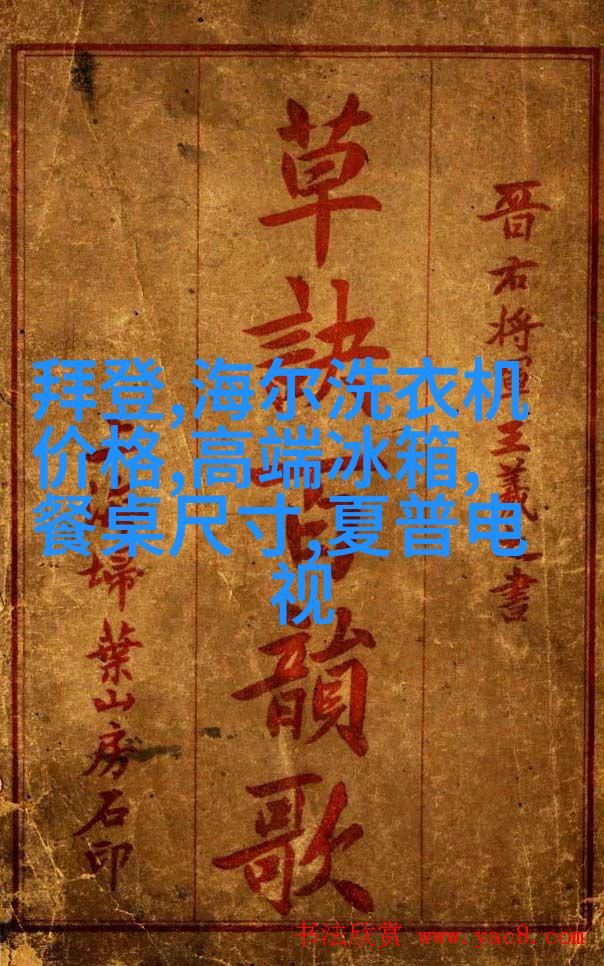 晉右将軍王羲之書
草訣百韻歌
上海掃葉山房石印
拜登,海尔洗衣机
价格,高端冰箱,
餐桌尺寸,夏普电
视
书法欣赏 www.yac8.com